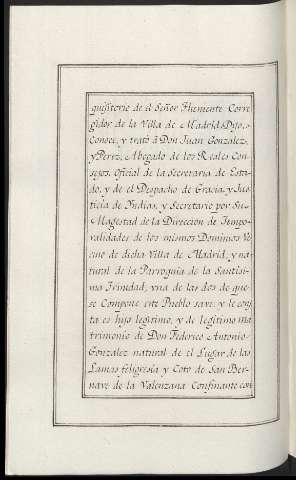 quisitorie de el Señor Theniente Corre
gidor de la Villa de Madrid, Dijo,
Conoce, y trató â Don Juan Gonzalez,
y Perez, Abogado de los Reales Con
sejos, Oficial de la Secretaria de Esta
do, y de el Despacho de Gracia, y Jus
ticia de Indias, y Secretario por Su
Magestad de la Direccion de Tempo
ralidades de los mismos Dominios Ve
cino de dicha Villa de Madrid, y na
tural de la Parroquia de la Santisi
ma Trinidad, vna de las dos de que
se Compone este Pueblo save, y le cons
ta es hijo legitimo, y de legitimo ma
trimonio de Don Federico Antonio
Gonzalez natural de el Lugar de las
Lamas feligresia, y Coto de San Ber
nave de la Valenzana Confinante con